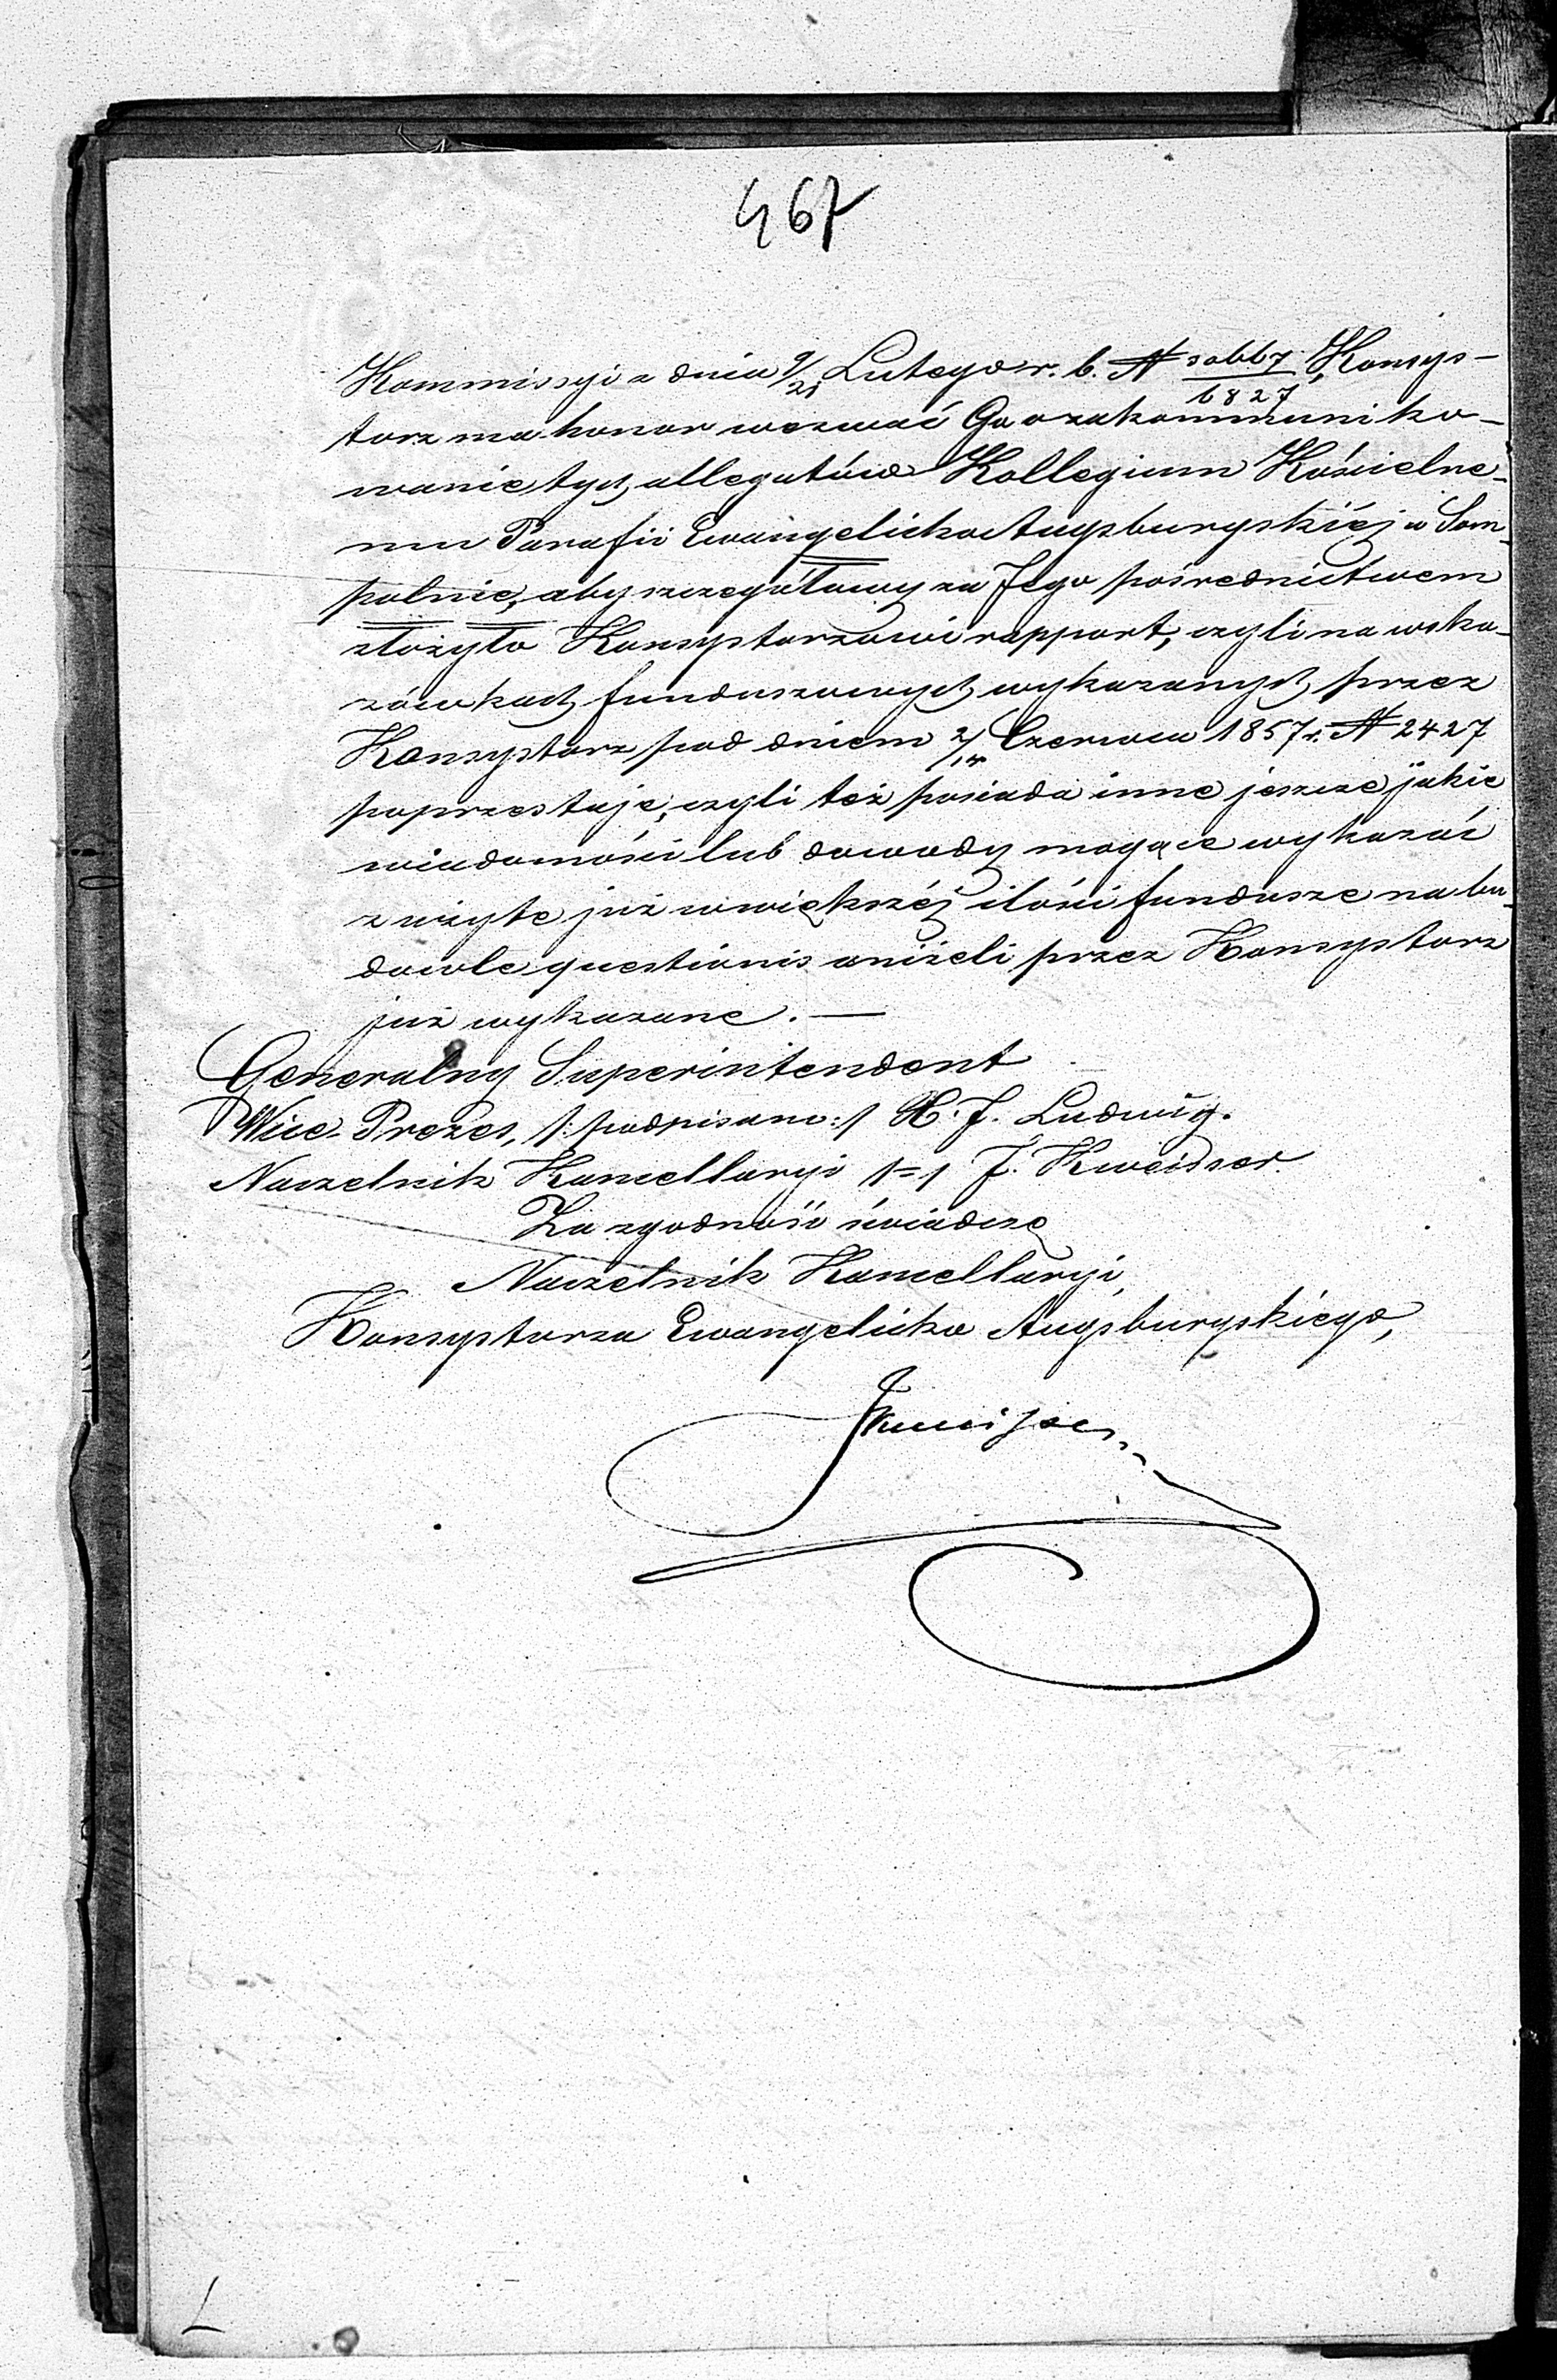 467
Kommissyi z dnia 9/21 Lutego r. b. N 30667/6827, Konsys-
torz ma honor wezwać Go o zakommuniko-
wanie tych allegatów Kollegium Kościelne-
mu Parafii Ewangelicko Augsburgskiéj w Som-
polnie, aby szczegółowy za Jego pośrednictwem
złożyło Konsystorzowi rapport, czyli na wska-
zówkach funduszowych wykazanych przez
Konsystorz pod dniem 2/14 Czerwca 1857 r. N 2427
poprzestaje, czyli też posiada inne jeszcze jakie
wiadomości lub dowody mogące wykazać
zużyte już w większéj ilości fundusze na bu-
dowle questionis aniżeli przez Konsystorz
już wykazane. —
Generalny Superintendent
Wice-Prezes, /:podpisano:/ J. Ludwig.
Naczelnik Kancellaryi /=/ J. Kweisser.
Za zgodność świadczę
Naczelnik Kancellaryi,
Konsystorza Ewangelicko Augsburgskiego,